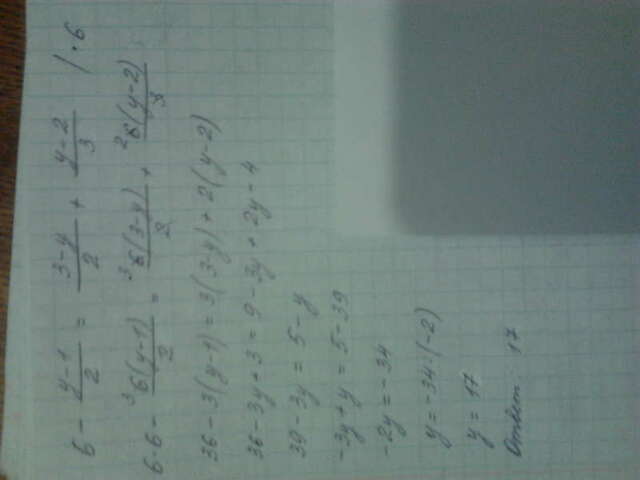 6 - \frac{y-1}{2} = \frac{3-y}{2} + \frac{y-2}{3} | · 6
6·6 - \frac{^3 6(y-1)}{2} = \frac{^3 6(3-y)}{2} + \frac{^2 6(y-2)}{3}
36 - 3(y-1) = 3(3-y) + 2(y-2)
36 - 3y + 3 = 9 - 3y + 2y - 4
39 - 3y = 5 - y
-3y + y = 5 - 39
-2y = -34
y = -34:(-2)
y = 17
Ответ: 17